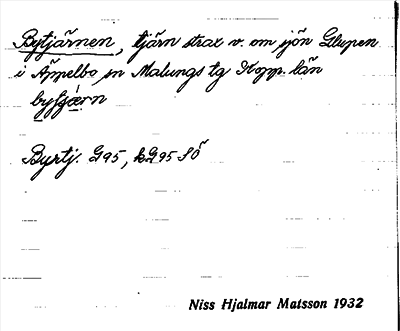 Bytjärnen, tjärn strax v. om sjön Llupen
i Äppelbo sn Malungs tg Kopp. län
bytjärn
Byrtj. G95, kG95 SÖ
Niss Hjalmar Matsson 1932